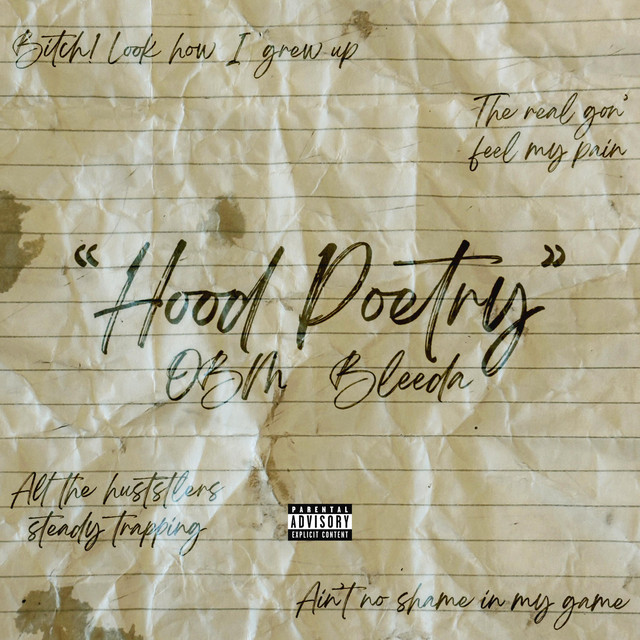 Bitch! Look how I grew up
The real gon'
feel my pain
"Hood Poetry"
OBM Bleeda
All the huststlers
steady trapping
PARENTAL
ADVISORY
EXPLICIT CONTENT
Ain't no shame in my game